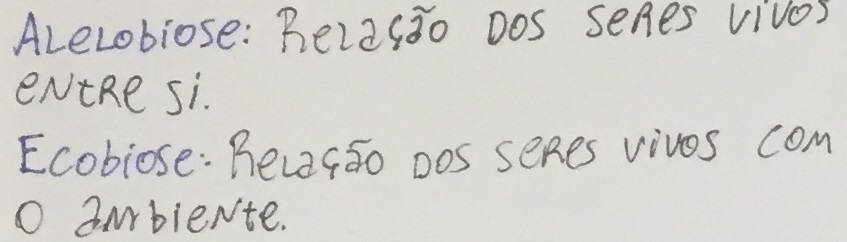 Alelobiose: Relação dos seres vivos
entre si.
Ecobiose: Relação dos seres vivos com
o ambiente.